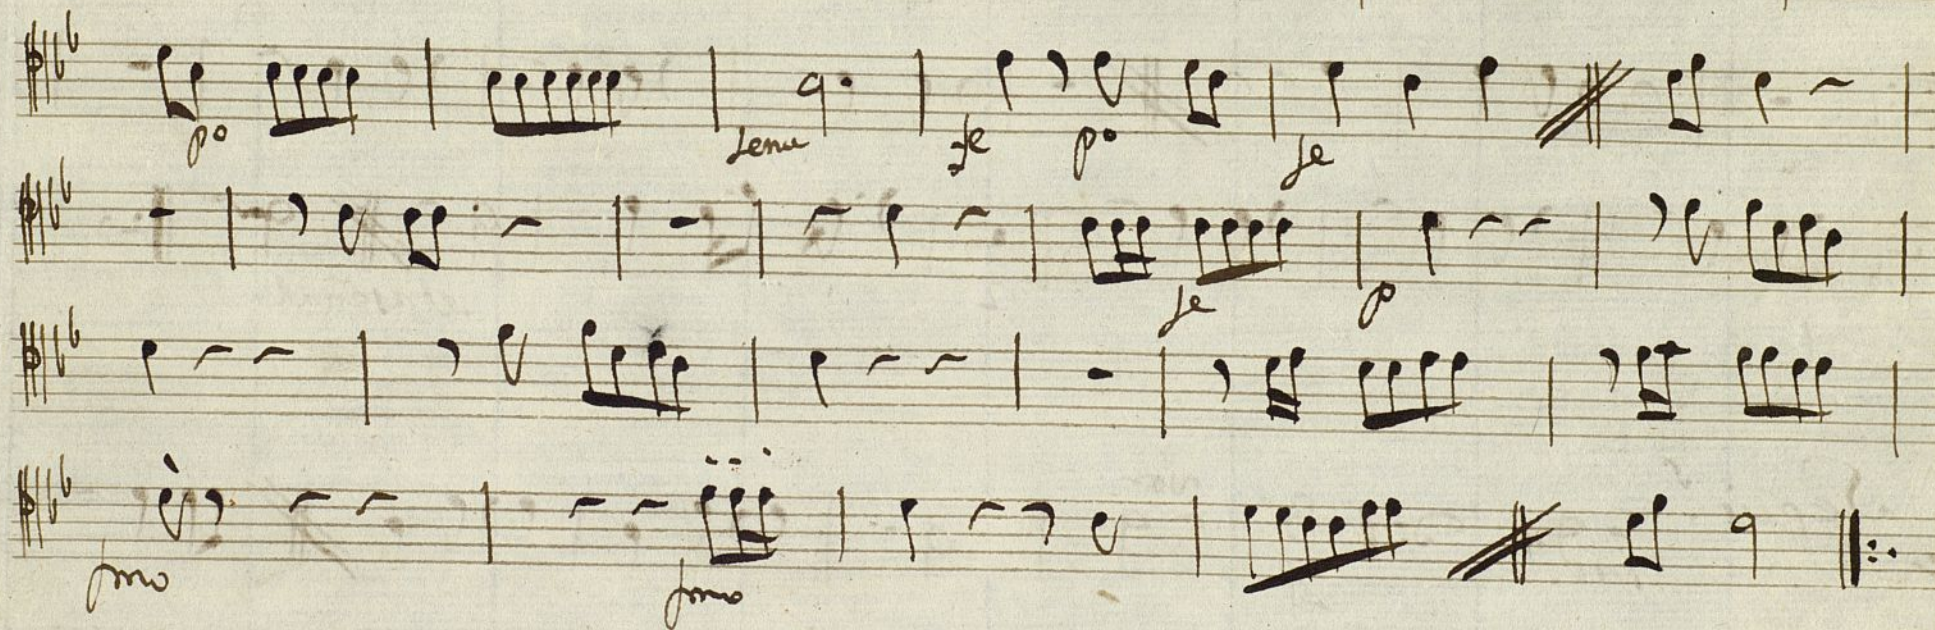 po tenu fe po fe
fe p
fmo fmo